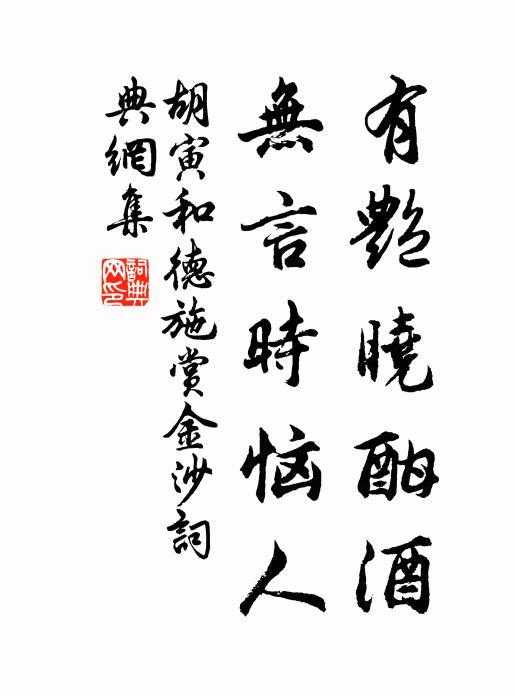 有艷曉酣酒
無言時惱人
胡寅和德施賞金沙詞
典網集
詞典
网印